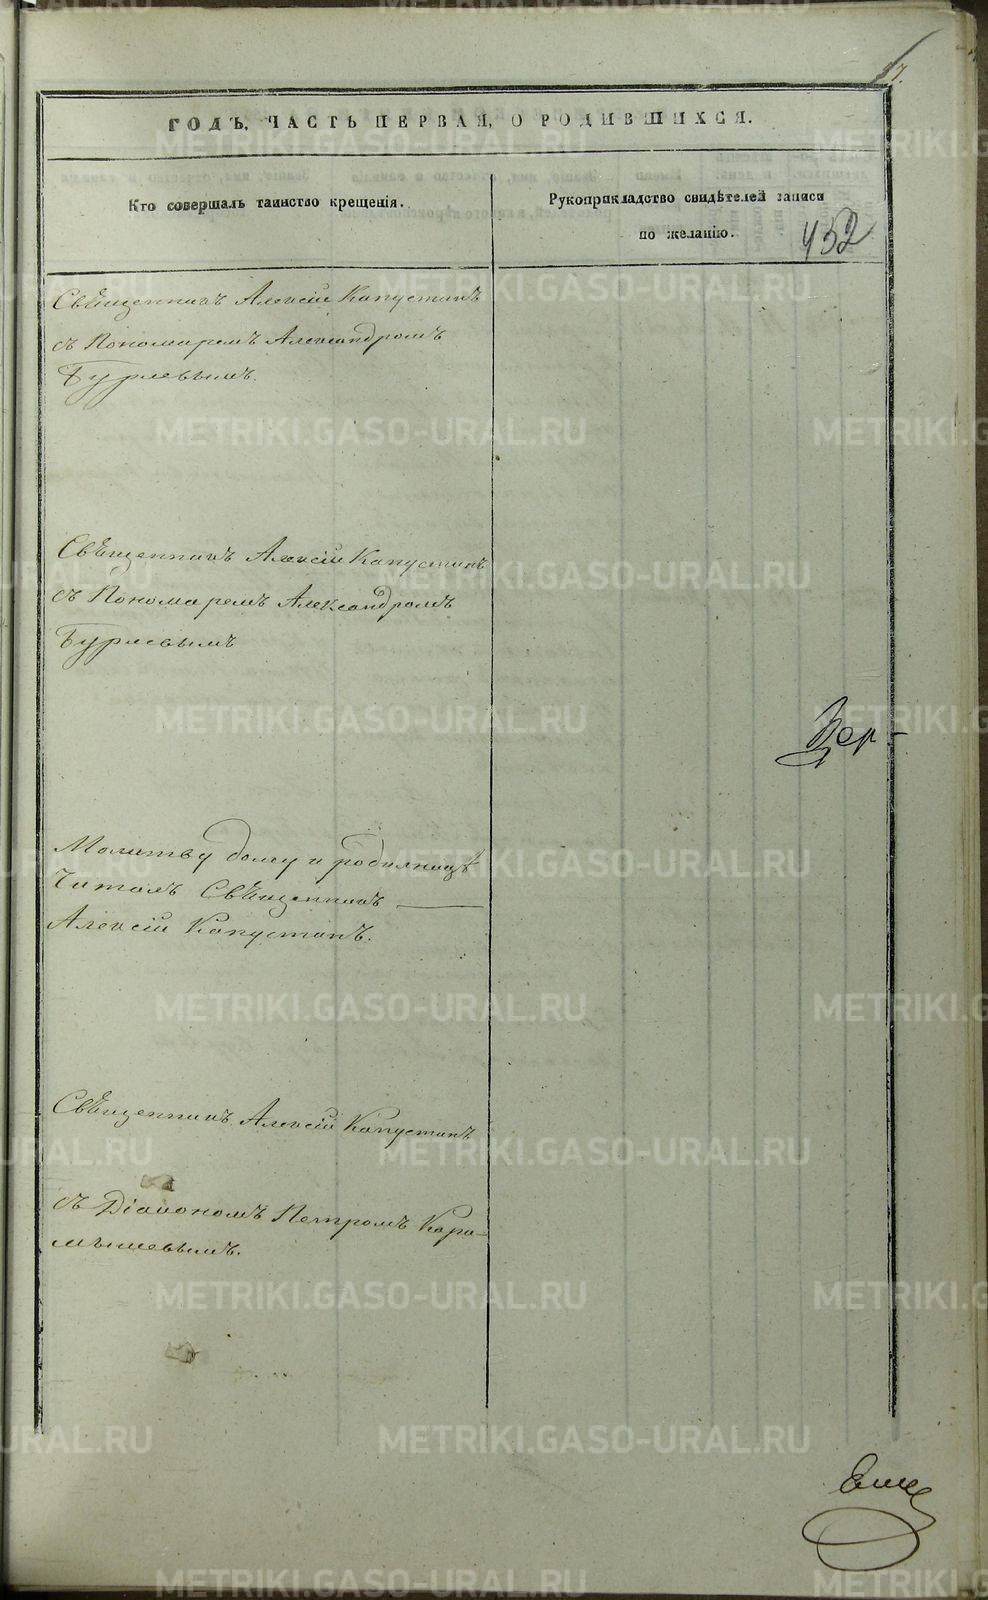 7.
ГОДЪ, ЧАСТЬ ПЕРВАЯ, О РОДИВШИХСЯ.
Кто совершалъ таинство крещенія.
Рукоприкладство свидѣтелей записи
по желанію.
452
Священникъ Алексій Капустинъ
съ Пономаремъ Александромъ
Бурлевымъ.
Свѣщенникъ Алексій Капустинъ
съ Пономаремъ Александромъ
Бурлевымъ
Молитву дому и родилницѣ
Читалъ Свѣщенникъ
Алексій Капустинъ.
Свѣщенникъ Алексій Капустинъ
съ Діакономъ Петромъ Кара-
мышевымъ.
METRIKI.GASO-URAL.RU